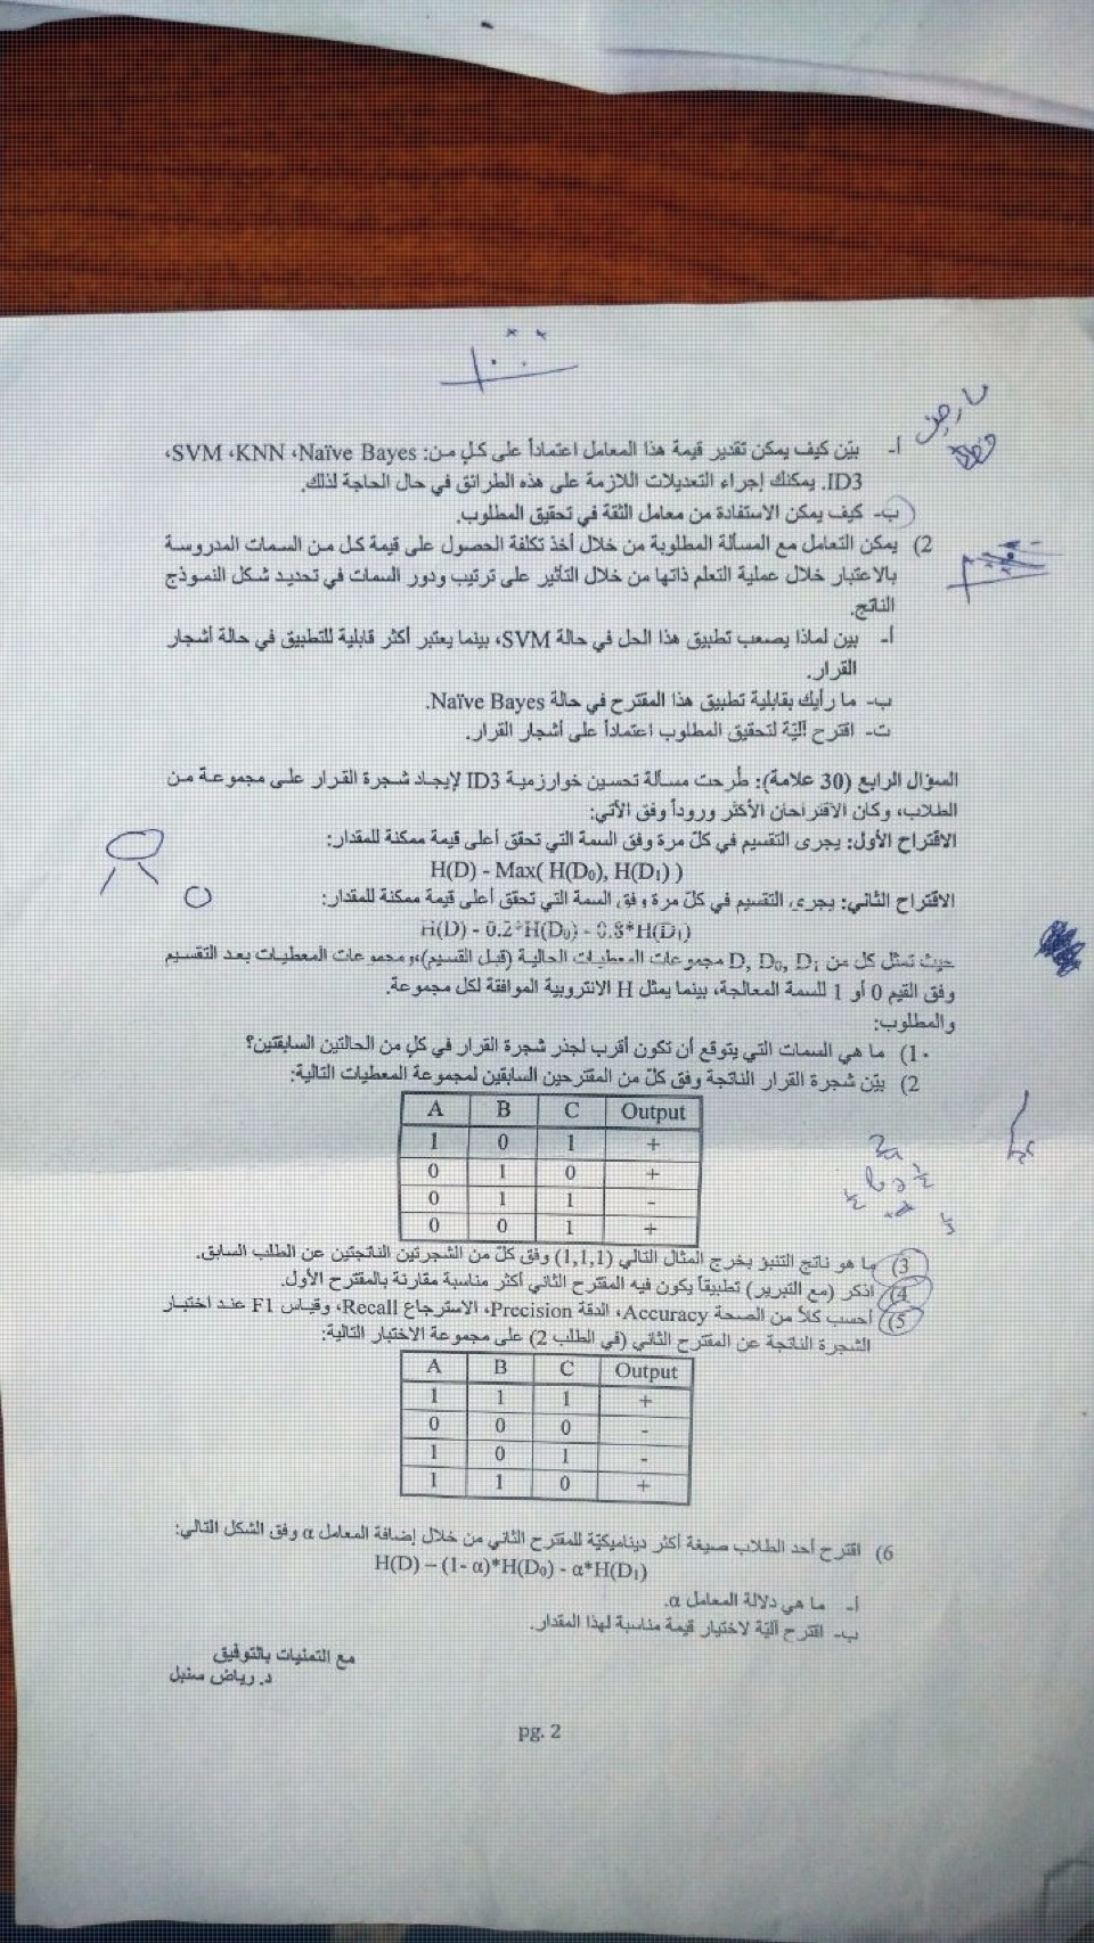 أ- بيّن كيف يمكن تقدير قيمة هذا المعامل اعتماداً على كلٍ من: SVM ،KNN ،Naïve Bayes،
ID3. يمكنك إجراء التعديلات اللازمة على هذه الطرائق في حال الحاجة لذلك.
ب- كيف يمكن الاستفادة من معامل الثقة في تحقيق المطلوب.
2) يمكن التعامل مع المسألة المطلوبة من خلال أخذ تكلفة الحصول على قيمة كل من السمات المدروسة
بالاعتبار خلال عملية التعلم ذاتها من خلال التأثير على ترتيب ودور السمات في تحديد شكل النموذج
الناتج.
أ- بين لماذا يصعب تطبيق هذا الحل في حالة SVM، بينما يعتبر أكثر قابلية للتطبيق في حالة أشجار
القرار.
ب- ما رأيك بقابلية تطبيق هذا المقترح في حالة Naïve Bayes.
ت- اقترح آليّة لتحقيق المطلوب اعتماداً على أشجار القرار.
السؤال الرابع (30 علامة): طُرحت مسألة تحسين خوارزمية ID3 لإيجاد شجرة القرار على مجموعة من
الطلاب، وكان الاقتراحان الأكثر وروداً وفق الآتي:
الاقتراح الأول: يجرى التقسيم في كلّ مرة وفق السمة التي تحقق أعلى قيمة ممكنة للمقدار:
H(D) - Max( H(D₀), H(D₁) )
الاقتراح الثاني: يجرى التقسيم في كلّ مرة وفق السمة التي تحقق أعلى قيمة ممكنة للمقدار:
H(D) - 0.2*H(D₀) - 0.8*H(D₁)
حيث تمثل كل من D, D₀, D₁ مجموعات المعطيات الحالية (قبل القسيم)، ومجموعات المعطيات بعد التقسيم
وفق القيم 0 أو 1 للسمة المعالجة، بينما يمثل H الانتروبية الموافقة لكل مجموعة.
والمطلوب:
1) ما هي السمات التي يتوقع أن تكون أقرب لجذر شجرة القرار في كلٍ من الحالتين السابقتين؟
2) بيّن شجرة القرار الناتجة وفق كلّ من المقترحين السابقين لمجموعة المعطيات التالية:
A B C Output
1 0 1 +
0 1 0 +
0 1 1 -
0 0 1 +
3) ما هو ناتج التنبؤ بخرج المثال التالي (1,1,1) وفق كلّ من الشجرتين الناتجتين عن الطلب السابق.
4) اذكر (مع التبرير) تطبيقاً يكون فيه المقترح الثاني أكثر مناسبة مقارنة بالمقترح الأول.
5) احسب كلاً من الصحة Accuracy، الدقة Precision، الاسترجاع Recall، وقياس F1 عند اختبار
الشجرة الناتجة عن المقترح الثاني (في الطلب 2) على مجموعة الاختبار التالية:
A B C Output
1 1 1 +
0 0 0 -
1 0 1 -
1 1 0 +
6) اقترح أحد الطلاب صيغة أكثر ديناميكيّة للمقترح الثاني من خلال إضافة المعامل α وفق الشكل التالي:
H(D) – (1- α)*H(D₀) - α*H(D₁)
أ- ما هي دلالة المعامل α.
ب- اقترح آليّة لاختيار قيمة مناسبة لهذا المقدار.
مع التمنيات بالتوفيق
د. رياض سنبل
pg. 2